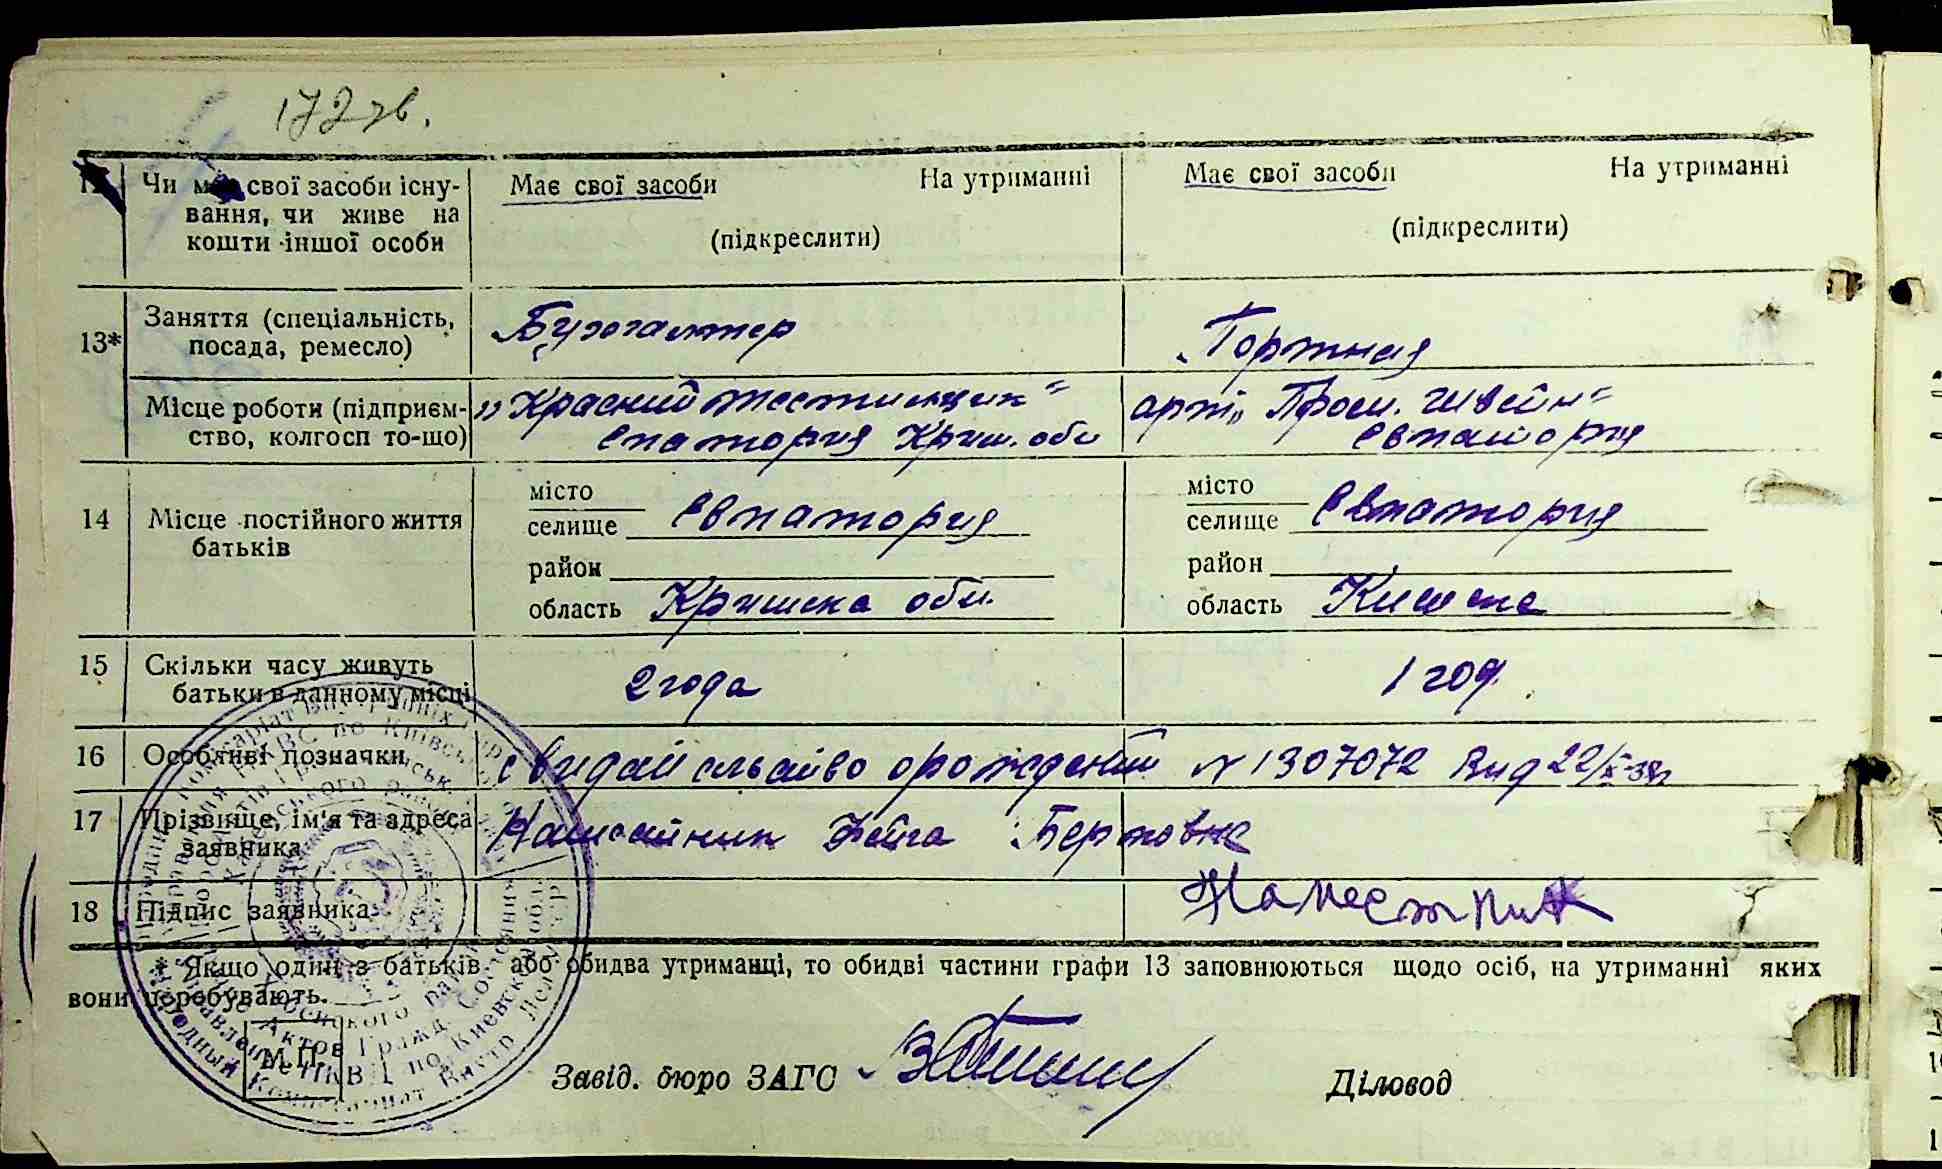 172 зв.
12 Чи має свої засоби існу-
вання, чи живе на
кошти іншої особи
Має свої засоби На утриманні
(підкреслити)
Має свої засоби На утриманні
(підкреслити)
13* Заняття (спеціальність,
посада, ремесло)
Бухгалтер
Портная
Місце роботи (підприєм-
ство, колгосп то-що)
"Красний
арт. "Пром. швейн"
Евпатория
14 Місце постійного життя
батьків
місто
селище Евпатория
район
область Кримска обл.
місто
селище Евпатория
район
область
15 Скільки часу живуть
батьки в данному місці
2 года
1 год.
16 Особливі позначки
о рождении N 1307072 Вид 22/X-38
17 Прізвище, ім'я та адреса
заявника
Бертовна
18 Підпис заявника
Наместник
* Якщо один з батьків або обидва утриманці, то обидві частини графи 13 заповнюються щодо осіб, на утриманні яких
вони перебувають.
М.П.
Завід. бюро ЗАГС
Діловод